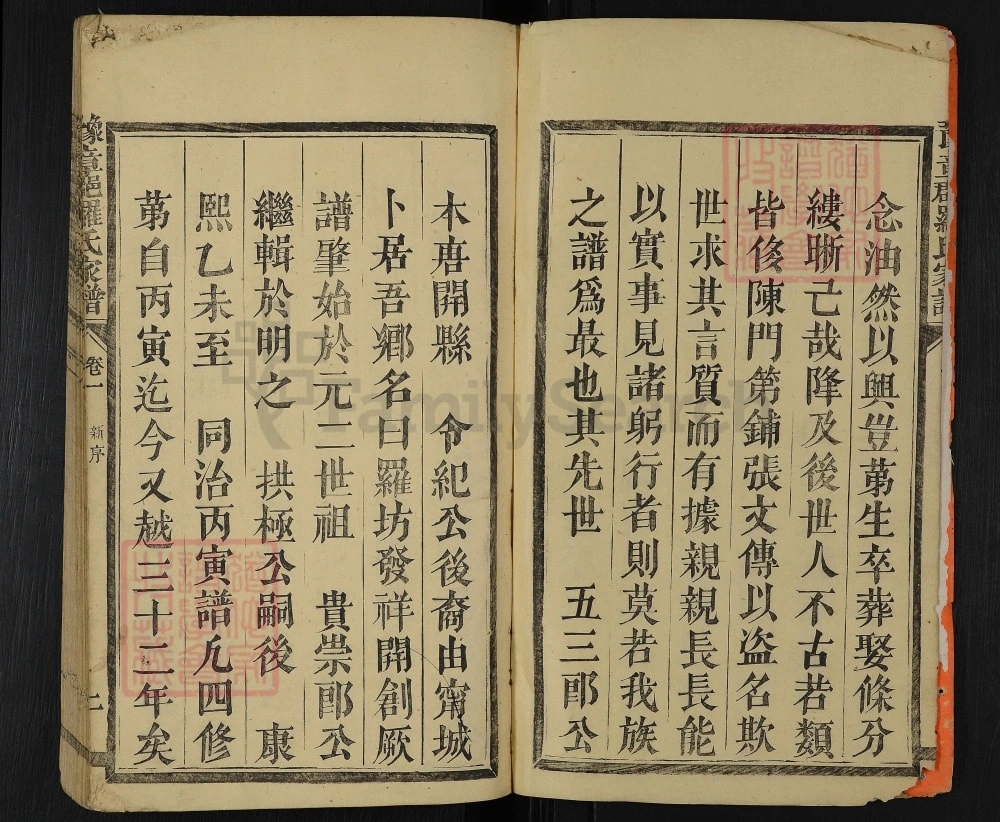 念油然以興豈苐生卒葬娶條分
縷晰己哉降及後世人不古若類
皆侈陳門第鋪張文傳以盜名欺
世求其言質而有據親親長長能
以實事見諸躬行者則莫若我族
之譜爲最也其先世 五三郎公
本唐開縣 令紀公後裔由甯城
卜居吾鄉名曰羅坊發祥開創厥
譜肇始於元二世祖 貴崇郎公
繼輯於明之 拱極公嗣後 康
熙乙未至 同治丙寅譜凡四修
苐自丙寅迄今又越三十二年矣
豫章郡羅氏家譜
卷一
新序
FamilySearch